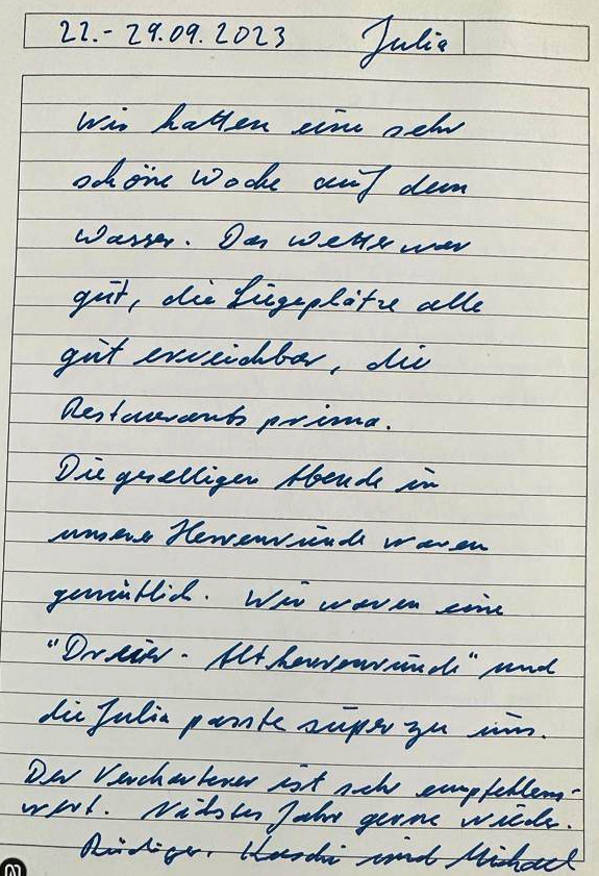 22.-29.09.2023 Julia
Wir hatten eine sehr
schöne Woche auf dem
Wasser. Das Wetter war
gut, die Liegeplätze alle
gut erreichbar, die
Restaurants prima.
Die geselligen Abende in
unserer Herrenrunde waren
gemütlich. Wir waren eine
"Dreier - Altherrenrunde" und
die Julia passte super zu uns.
Der Vercharterer ist sehr empfehlens-
wert. Nächstes Jahr gerne wieder.
Rüdiger, und Michael